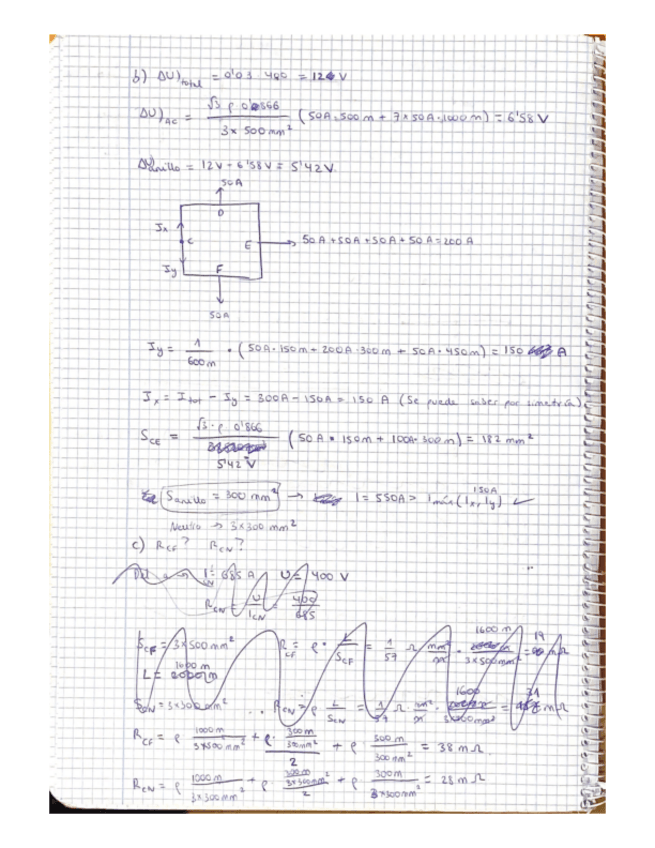 b) ΔU)total = 0'03 · 400 = 12 V
ΔU)AC = √3 ρ 0'866 / 3x 500 mm² (50A·500m + 7x50A·1000m) = 6'58 V
ΔUanillo = 12V - 6'58V = 5'42V
50A
D
Ix
C
E
50A+50A+50A+50A=200A
Iy
F
50A
Iy = 1 / 600m · (50A·150m + 200A·300m + 50A·450m) = 150 A
Ix = Itot - Iy = 300A - 150A = 150 A (Se puede saber por simetría)
SCE = √3·ρ 0'866 / 5'42 V (50A · 150m + 100A·300m) = 182 mm²
Sanillo = 300 mm² → I = 550A > Imáx(Ix, Iy) ✓
150A
Neutro → 3x300 mm²
c) RCF? RCN?
I = 685 A U = 400 V
RCN = U / ICN = 400 / 685
SCF = 3x500mm² RCF = ρ · L / SCF = 1 / 57 Ω mm² / m · 1600m / 3x500mm² = 19 mΩ
L = 1600m
SCN = 3x300mm² RCN = ρ L / SCN = 1 / 57 Ω · m² / m · 1600 / 3x300mm² = 31 mΩ
RCF = ρ 1000m / 3x500mm² + ρ · 300m / 300mm² / 2 + ρ 500m / 300mm² = 38 mΩ.
RCN = ρ 1000m / 3x300mm² + ρ 300m / 3x300mm² / 2 + ρ 300m / 3x300mm² = 28 mΩ